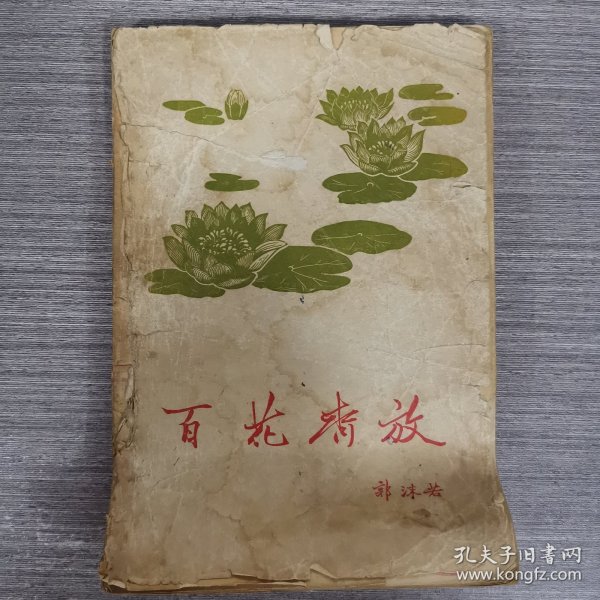 百花齐放
郭沫若
孔夫子旧书网
www.kongfz.com